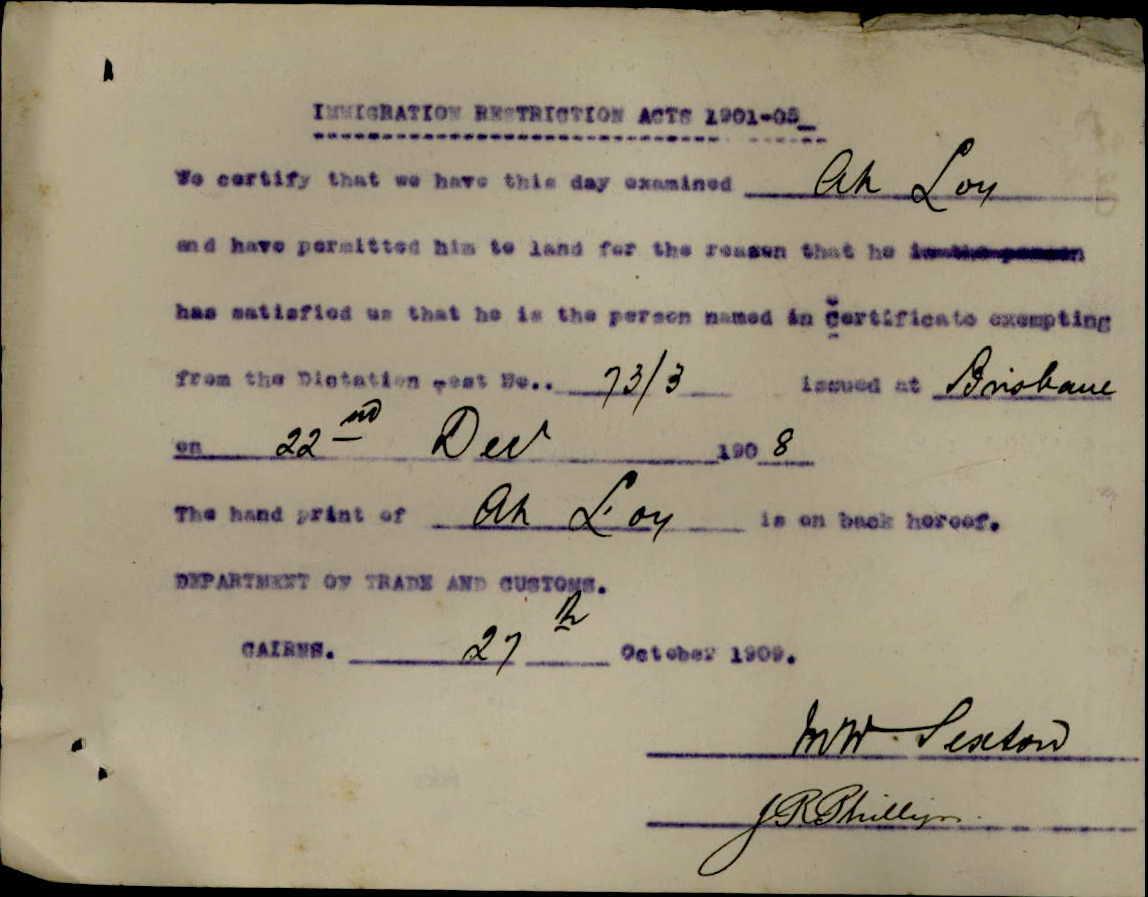 IMMIGRATION RESTRICTION ACTS 1901-05_
We certify that we have this day examined Ah Loy
and have permitted him to land for the reason that he is the person
has satisfied us that he is the person named in Certificate exempting
from the Dictation Test No.. 73/3 issued at Brisbane
on 22nd Decr 1908
The hand print of Ah Loy is on back hereof.
DEPARTMENT OF TRADE AND CUSTOMS.
CAIRNS. 27th October 1909.
MW Sexton
J R Phillips